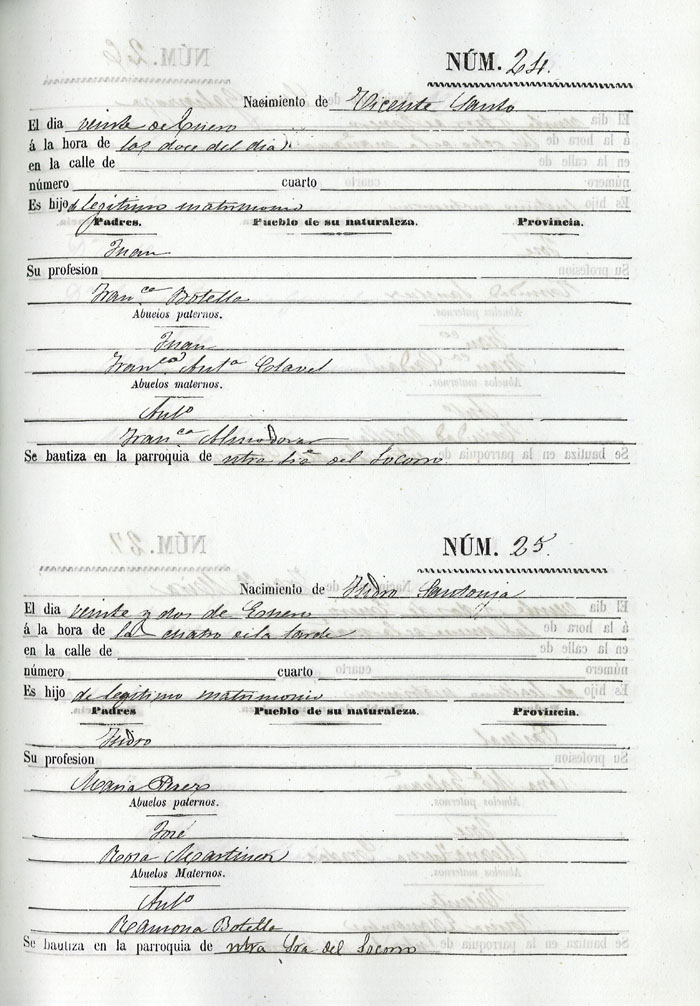 NÚM. 24.
Nacimiento de Vicente Santo
El dia veinte de Enero
á la hora de las doce del dia
en la calle de
número cuarto
Es hijo de legitimo matrimonio
Padres. Pueblo de su naturaleza. Provincia.
Juan
Su profesion
Fran.ca Botella
Abuelos paternos.
Juan
Fran.ca Ant.a Clavel
Abuelos maternos.
Ant.o
Fran.ca Almodovar
Se bautiza en la parroquia de ntra Sra del Socorro
NÚM. 25.
Nacimiento de Isidro Santonja
El dia veinte y dos de Enero
á la hora de las cuatro de la tarde
en la calle de
número cuarto
Es hijo de legitimo matrimonio
Padres Pueblo de su naturaleza. Provincia.
Isidro
Su profesion
Maria Perez
Abuelos paternos.
José
Rosa Martinez
Abuelos Maternos.
Ant.o
Ramona Botella
Se bautiza en la parroquia de ntra Sra del Socorro